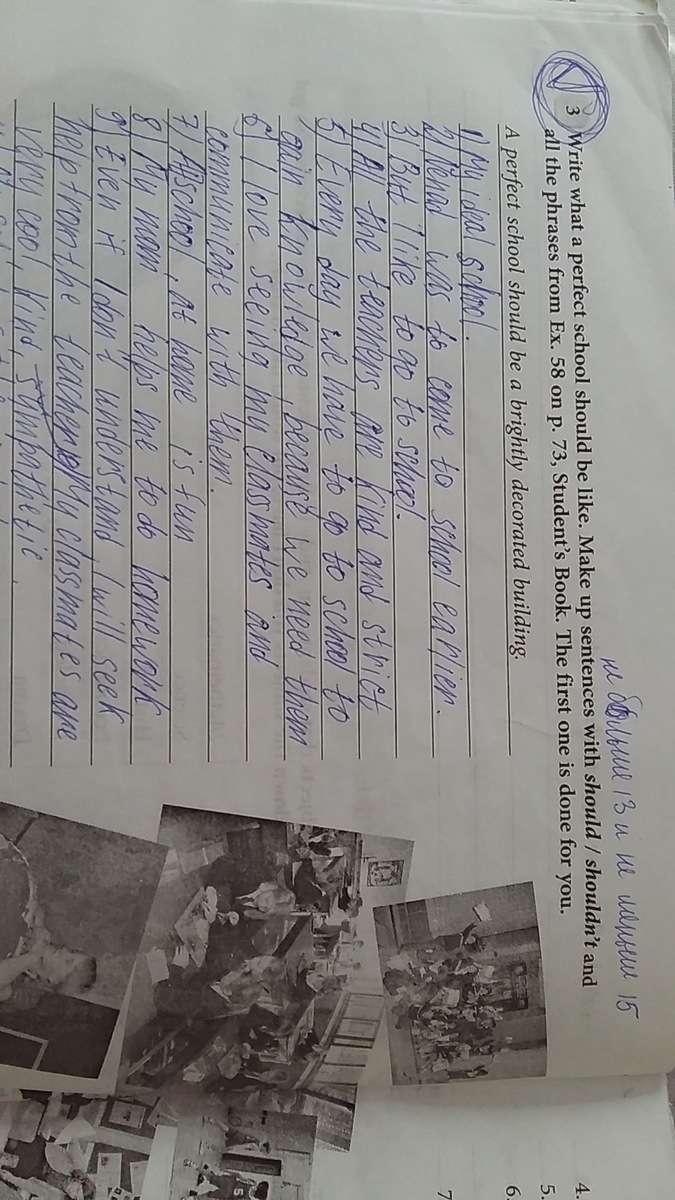 не больше 13 и не меньше 15
3 Write what a perfect school should be like. Make up sentences with should / shouldn't and
all the phrases from Ex. 58 on p. 73, Student's Book. The first one is done for you.
A perfect school should be a brightly decorated building.
1) My ideal school.
2) was to come to school earlier.
3) But I like to go to school.
4) All the teachers are kind and strict
5) Every day we have to go to school to
gain knowledge, because we need them
6) I love seeing my classmates and
communicate with them.
7) At school, at home is fun
8) My mom helps me to do homework
9) Even if I don't understand, I will seek
help from the teacher. My classmates are
very cool, kind, sympathetic.
4.
5.
6.
7